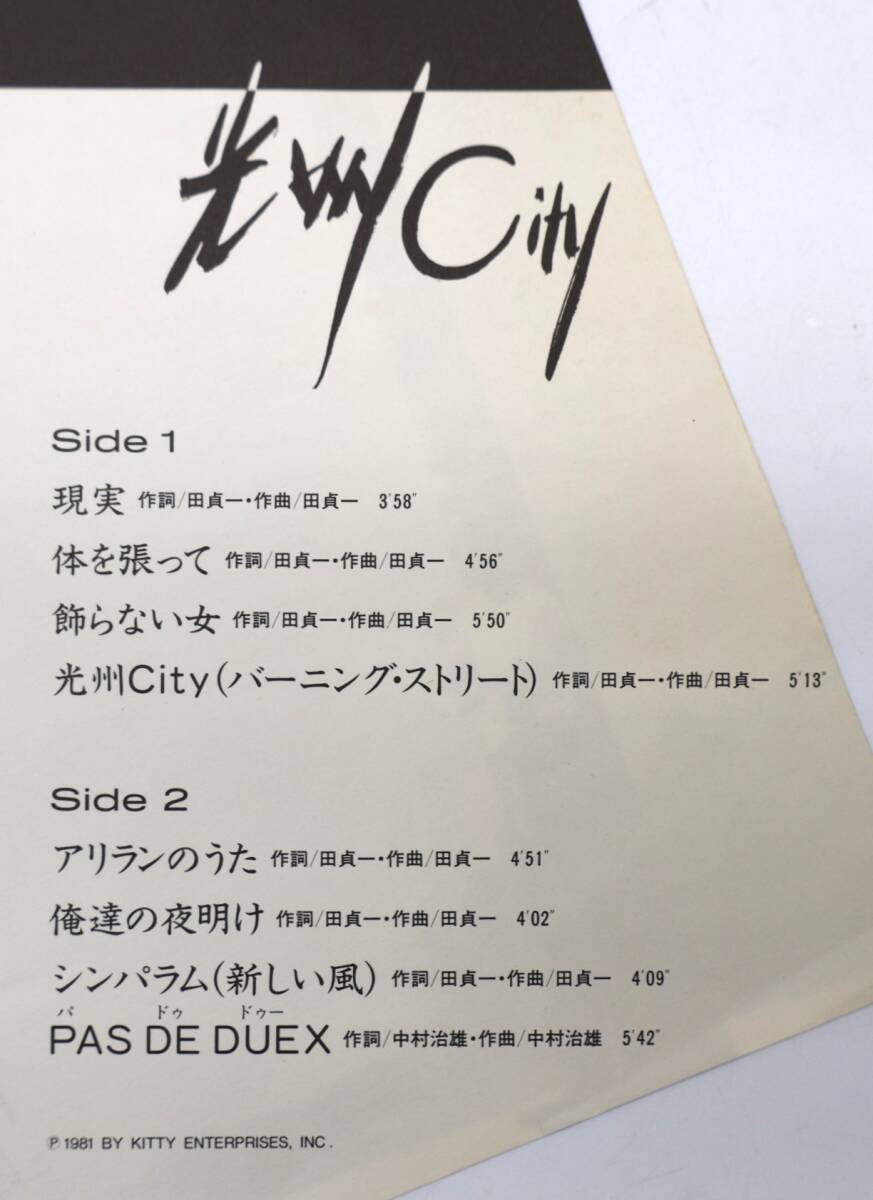 光州City
Side 1
現実 作詞/田貞一・作曲/田貞一 3'58"
体を張って 作詞/田貞一・作曲/田貞一 4'56"
飾らない女 作詞/田貞一・作曲/田貞一 5'50"
光州City(バーニング・ストリート) 作詞/田貞一・作曲/田貞一 5'13"
Side 2
アリランのうた 作詞/田貞一・作曲/田貞一 4'51"
俺達の夜明け 作詞/田貞一・作曲/田貞一 4'02"
シンパラム(新しい風) 作詞/田貞一・作曲/田貞一 4'09"
パ ドゥ ドゥー
PAS DE DUEX 作詞/中村治雄・作曲/中村治雄 5'42"
Ⓟ1981 BY KITTY ENTERPRISES, INC.